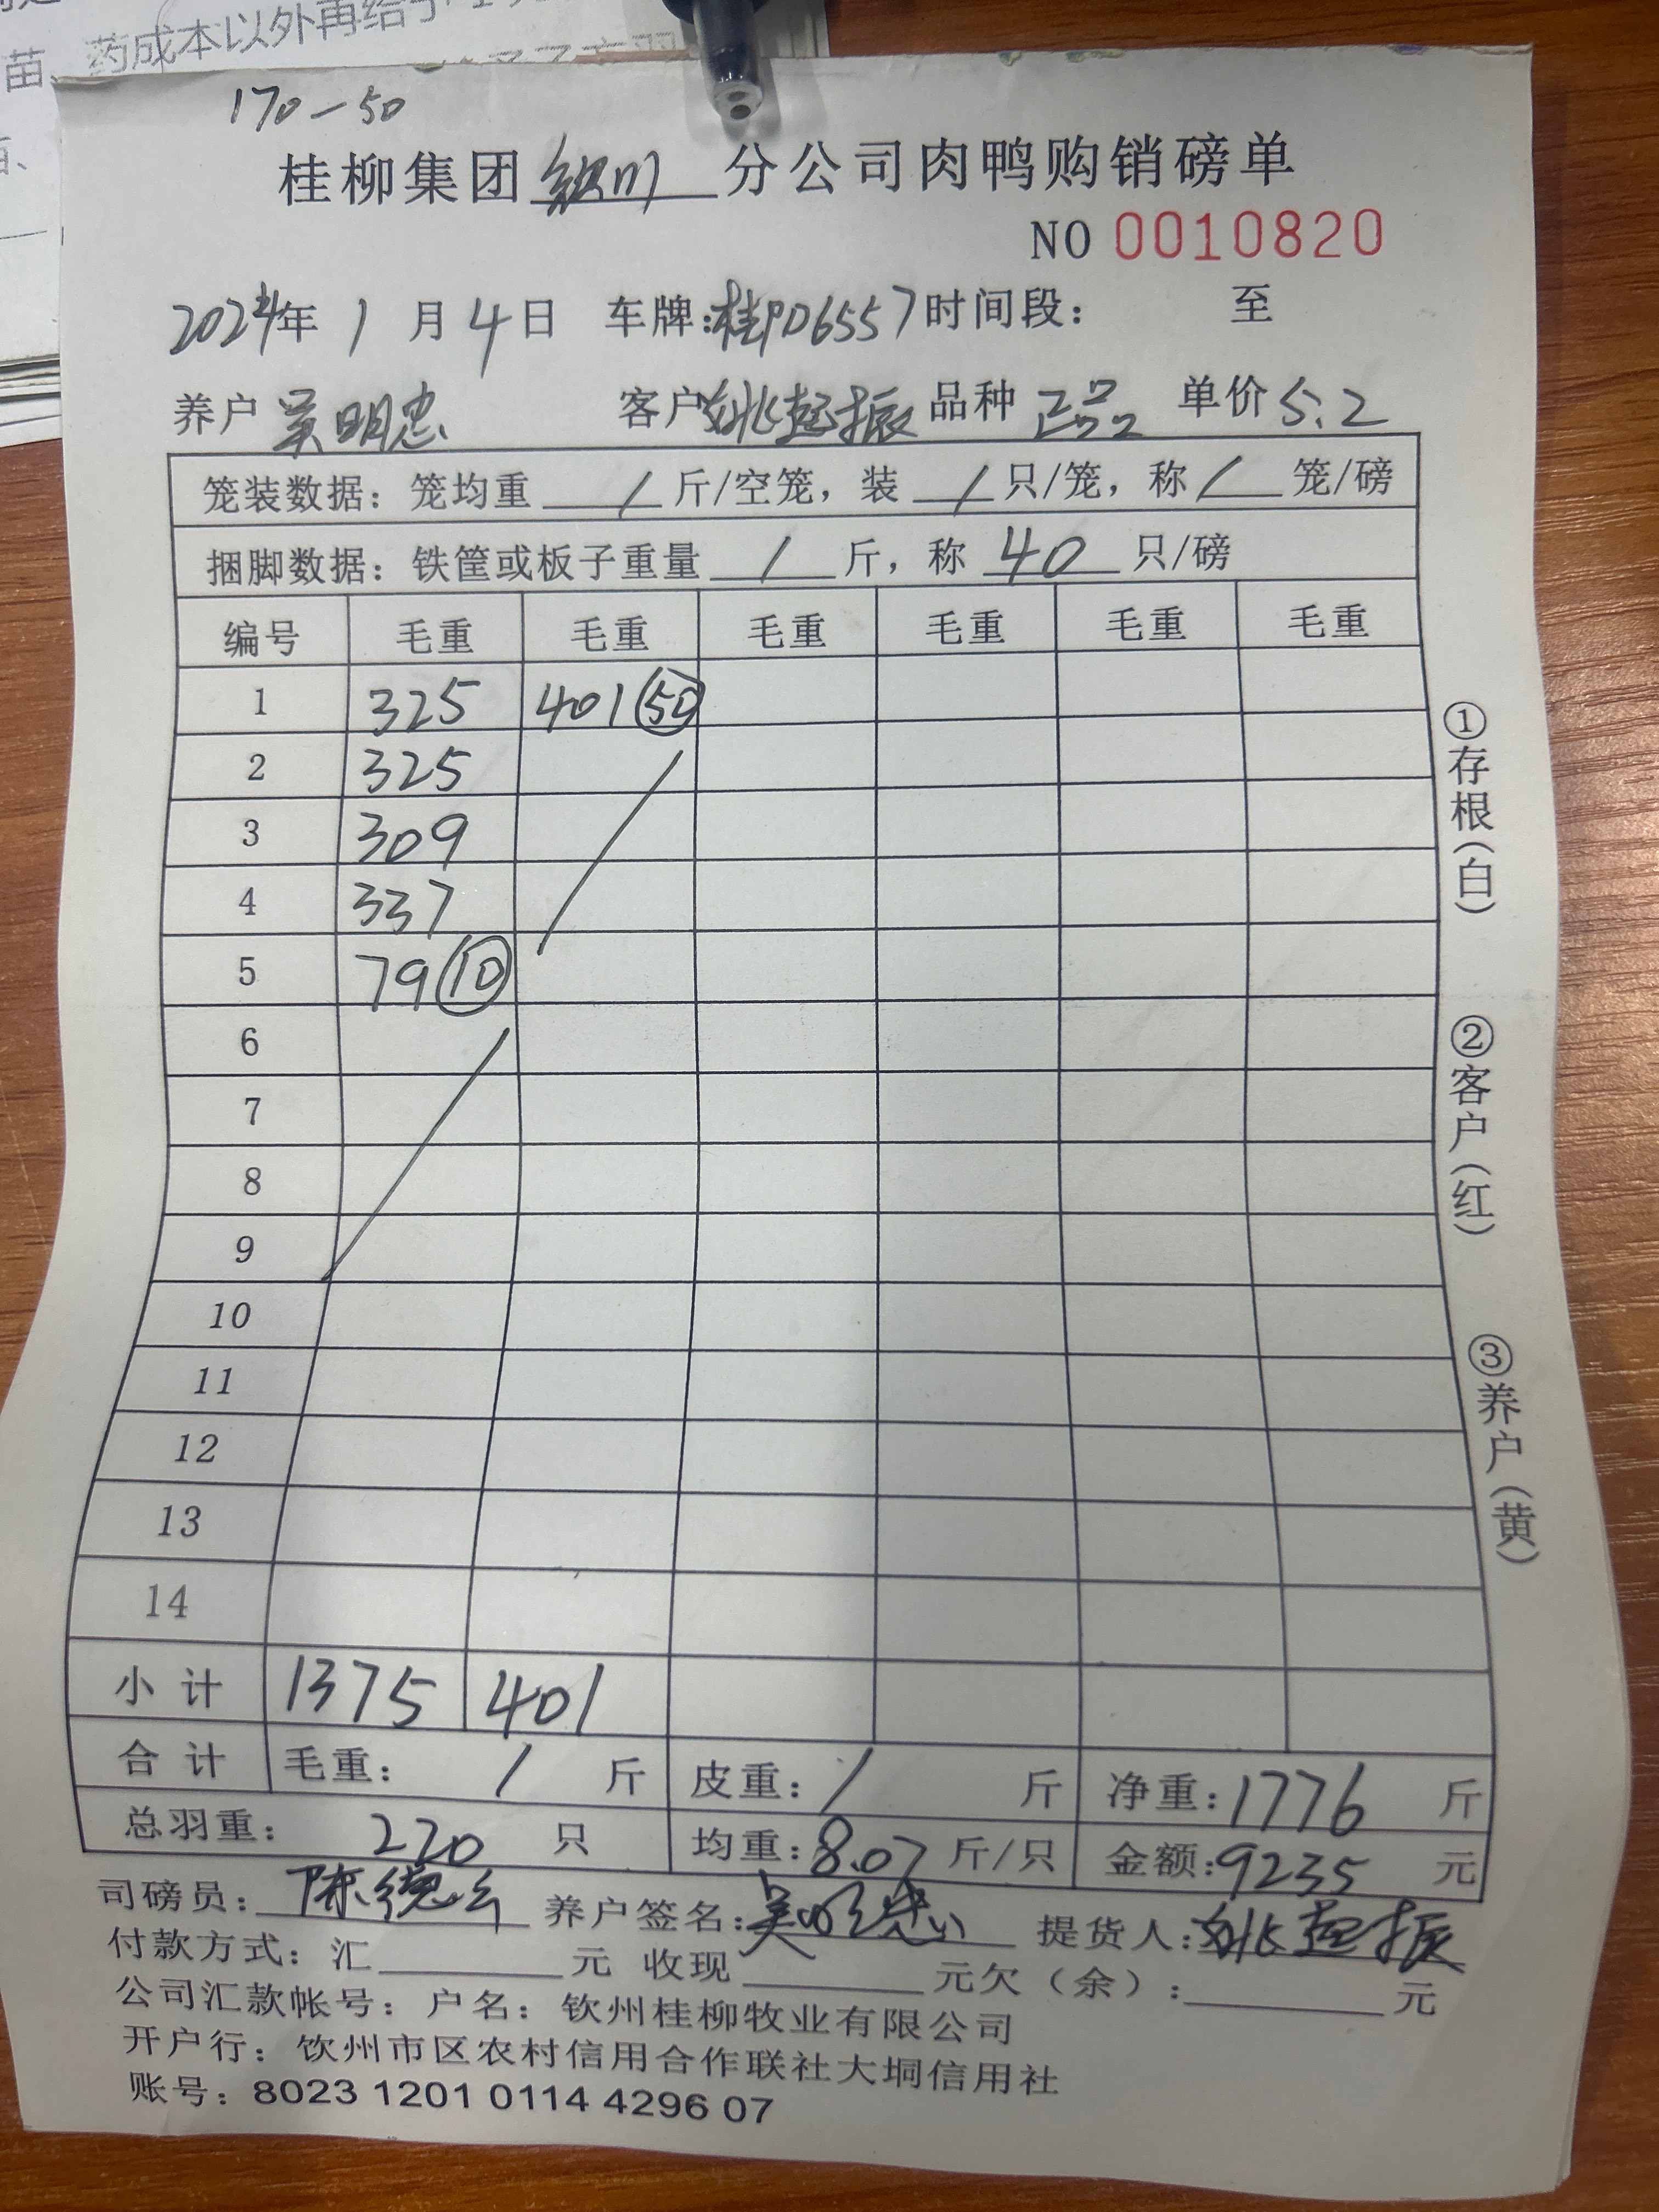 苗、药成本以外再给予
170-50
桂柳集团 分公司肉鸭购销磅单
NO 0010820
2024年 1 月 4 日 车牌:桂PD6557 时间段: 至
养户 吴明忠 客户 姚起振 品种 正品 单价 5.2
笼装数据: 笼均重 / 斤/空笼, 装 / 只/笼, 称 / 笼/磅
捆脚数据: 铁筐或板子重量 / 斤, 称 40 只/磅
编号 毛重 毛重 毛重 毛重 毛重 毛重
1 325 401 (50)
2 325
3 309
4 337
5 79 (10)
6
7
8
9
10
11
12
13
14
小计 1375 401
合计 毛重: / 斤 皮重: / 斤 净重: 1776 斤
总羽重: 220 只 均重: 8.07 斤/只 金额: 9235 元
司磅员: 陈德 养户签名: 吴明忠 提货人: 姚起振
付款方式: 汇 元 收现 元欠(余): 元
公司汇款帐号: 户名: 钦州桂柳牧业有限公司
开户行: 钦州市区农村信用合作联社大垌信用社
账号: 8023 1201 0114 4296 07
①存根(白)
②客户(红)
③养户(黄)